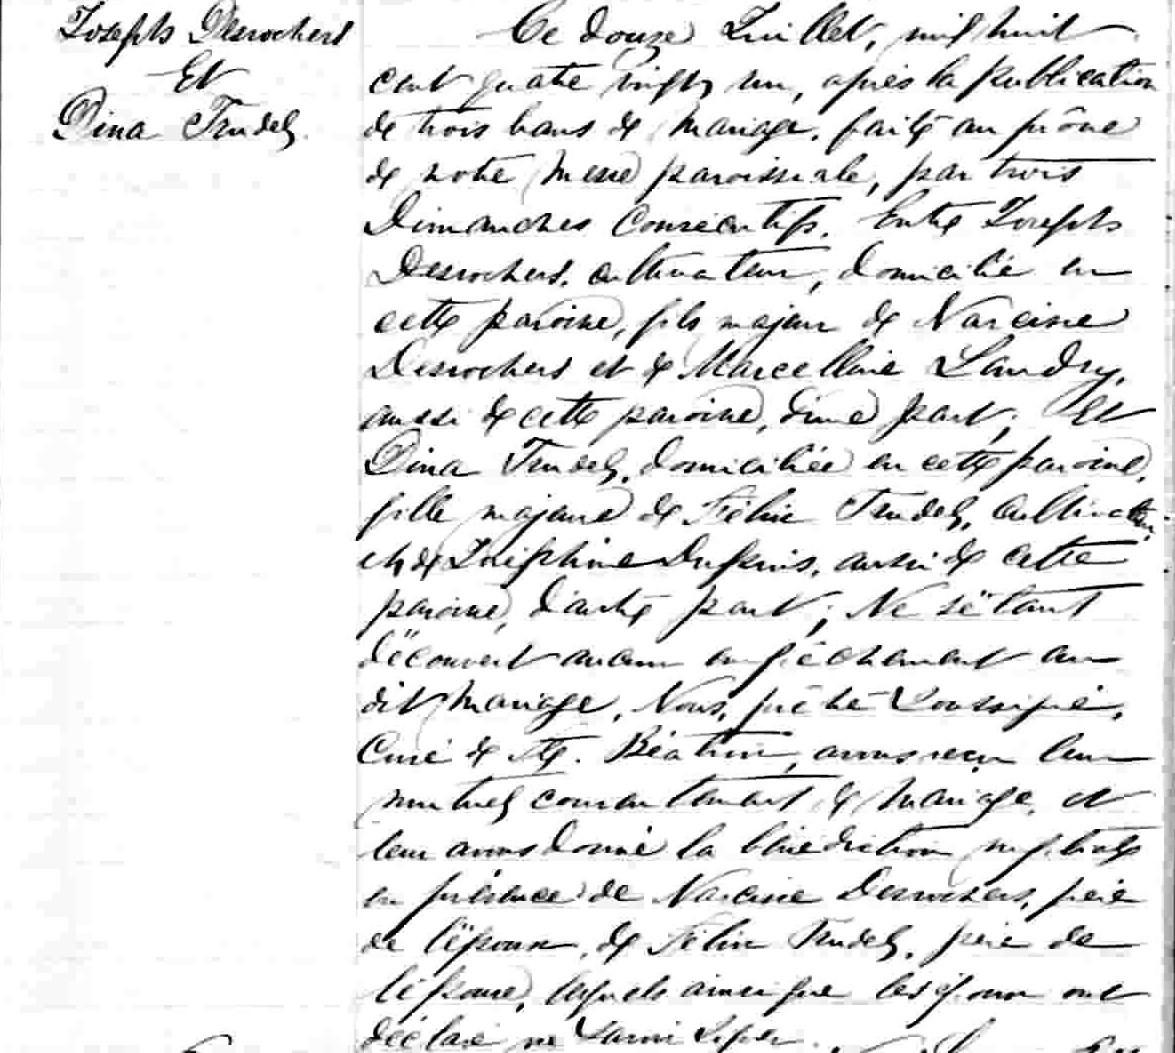 Joseph Desrochers
Et
Dina Trudel.
Ce douze Juillet, mil huit
cent quatre vingt un, après la publication
de trois bans de mariage, faite au prône
de notre messe paroissiale, par trois
Dimanches consécutifs. Entre Joseph
Desrochers, cultivateur, domicilié en
cette paroisse, fils majeur de Narcisse
Desrochers et de Marcelline Landry,
aussi de cette paroisse, d'une part; Et
Dina Trudel, domiciliée en cette paroisse,
fille majeure de Félix Trudel, cultivateur
et de Joséphine Dupuis, aussi de cette
paroisse, d'autre part; Ne s'étant
découvert aucun empêchement au
dit mariage, Nous, prêtre soussigné,
Curé de Ste. Béatrix, avons reçu leur
mutuel consentement de mariage, et
leur avons donné la bénédiction nuptiale
en présence de Narcisse Desrochers, père
de l'époux, de Félix Trudel, père de
l'épouse, lesquels ainsi que les époux ont
déclaré ne savoir signer.